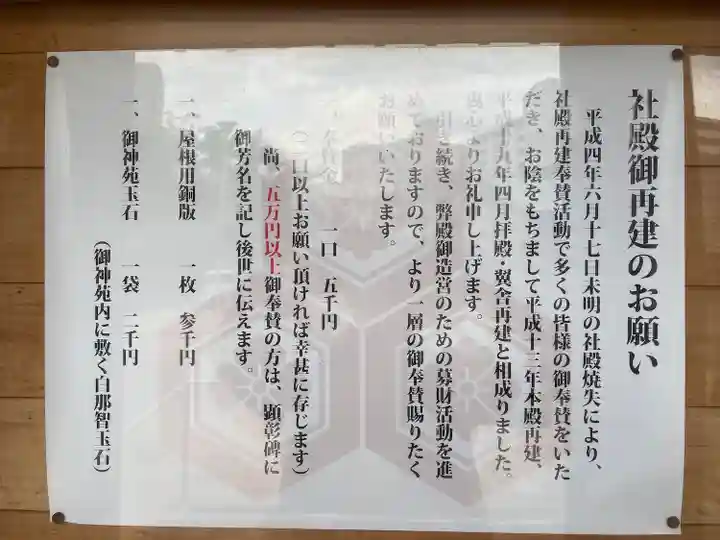 社殿御再建のお願い
平成四年六月十七日未明の社殿焼失により、
社殿再建奉賛活動で多くの皆様の御奉賛をいた
だき、お陰をもちまして平成十三年本殿再建、
平成十九年四月拝殿・翼舎再建と相成りました。
衷心よりお礼申し上げます。
引き続き、弊殿御造営のための募財活動を進
めておりますので、より一層の御奉賛賜りたく
お願いいたします。
一、奉賛金 一口 五千円
(二口以上お願い頂ければ幸甚に存じます)
尚、五万円以上御奉賛の方は、顕彰碑に
御芳名を記し後世に伝えます。
一、屋根用銅版 一枚 参千円
一、御神苑玉石 一袋 二千円
(御神苑内に敷く白那智玉石)